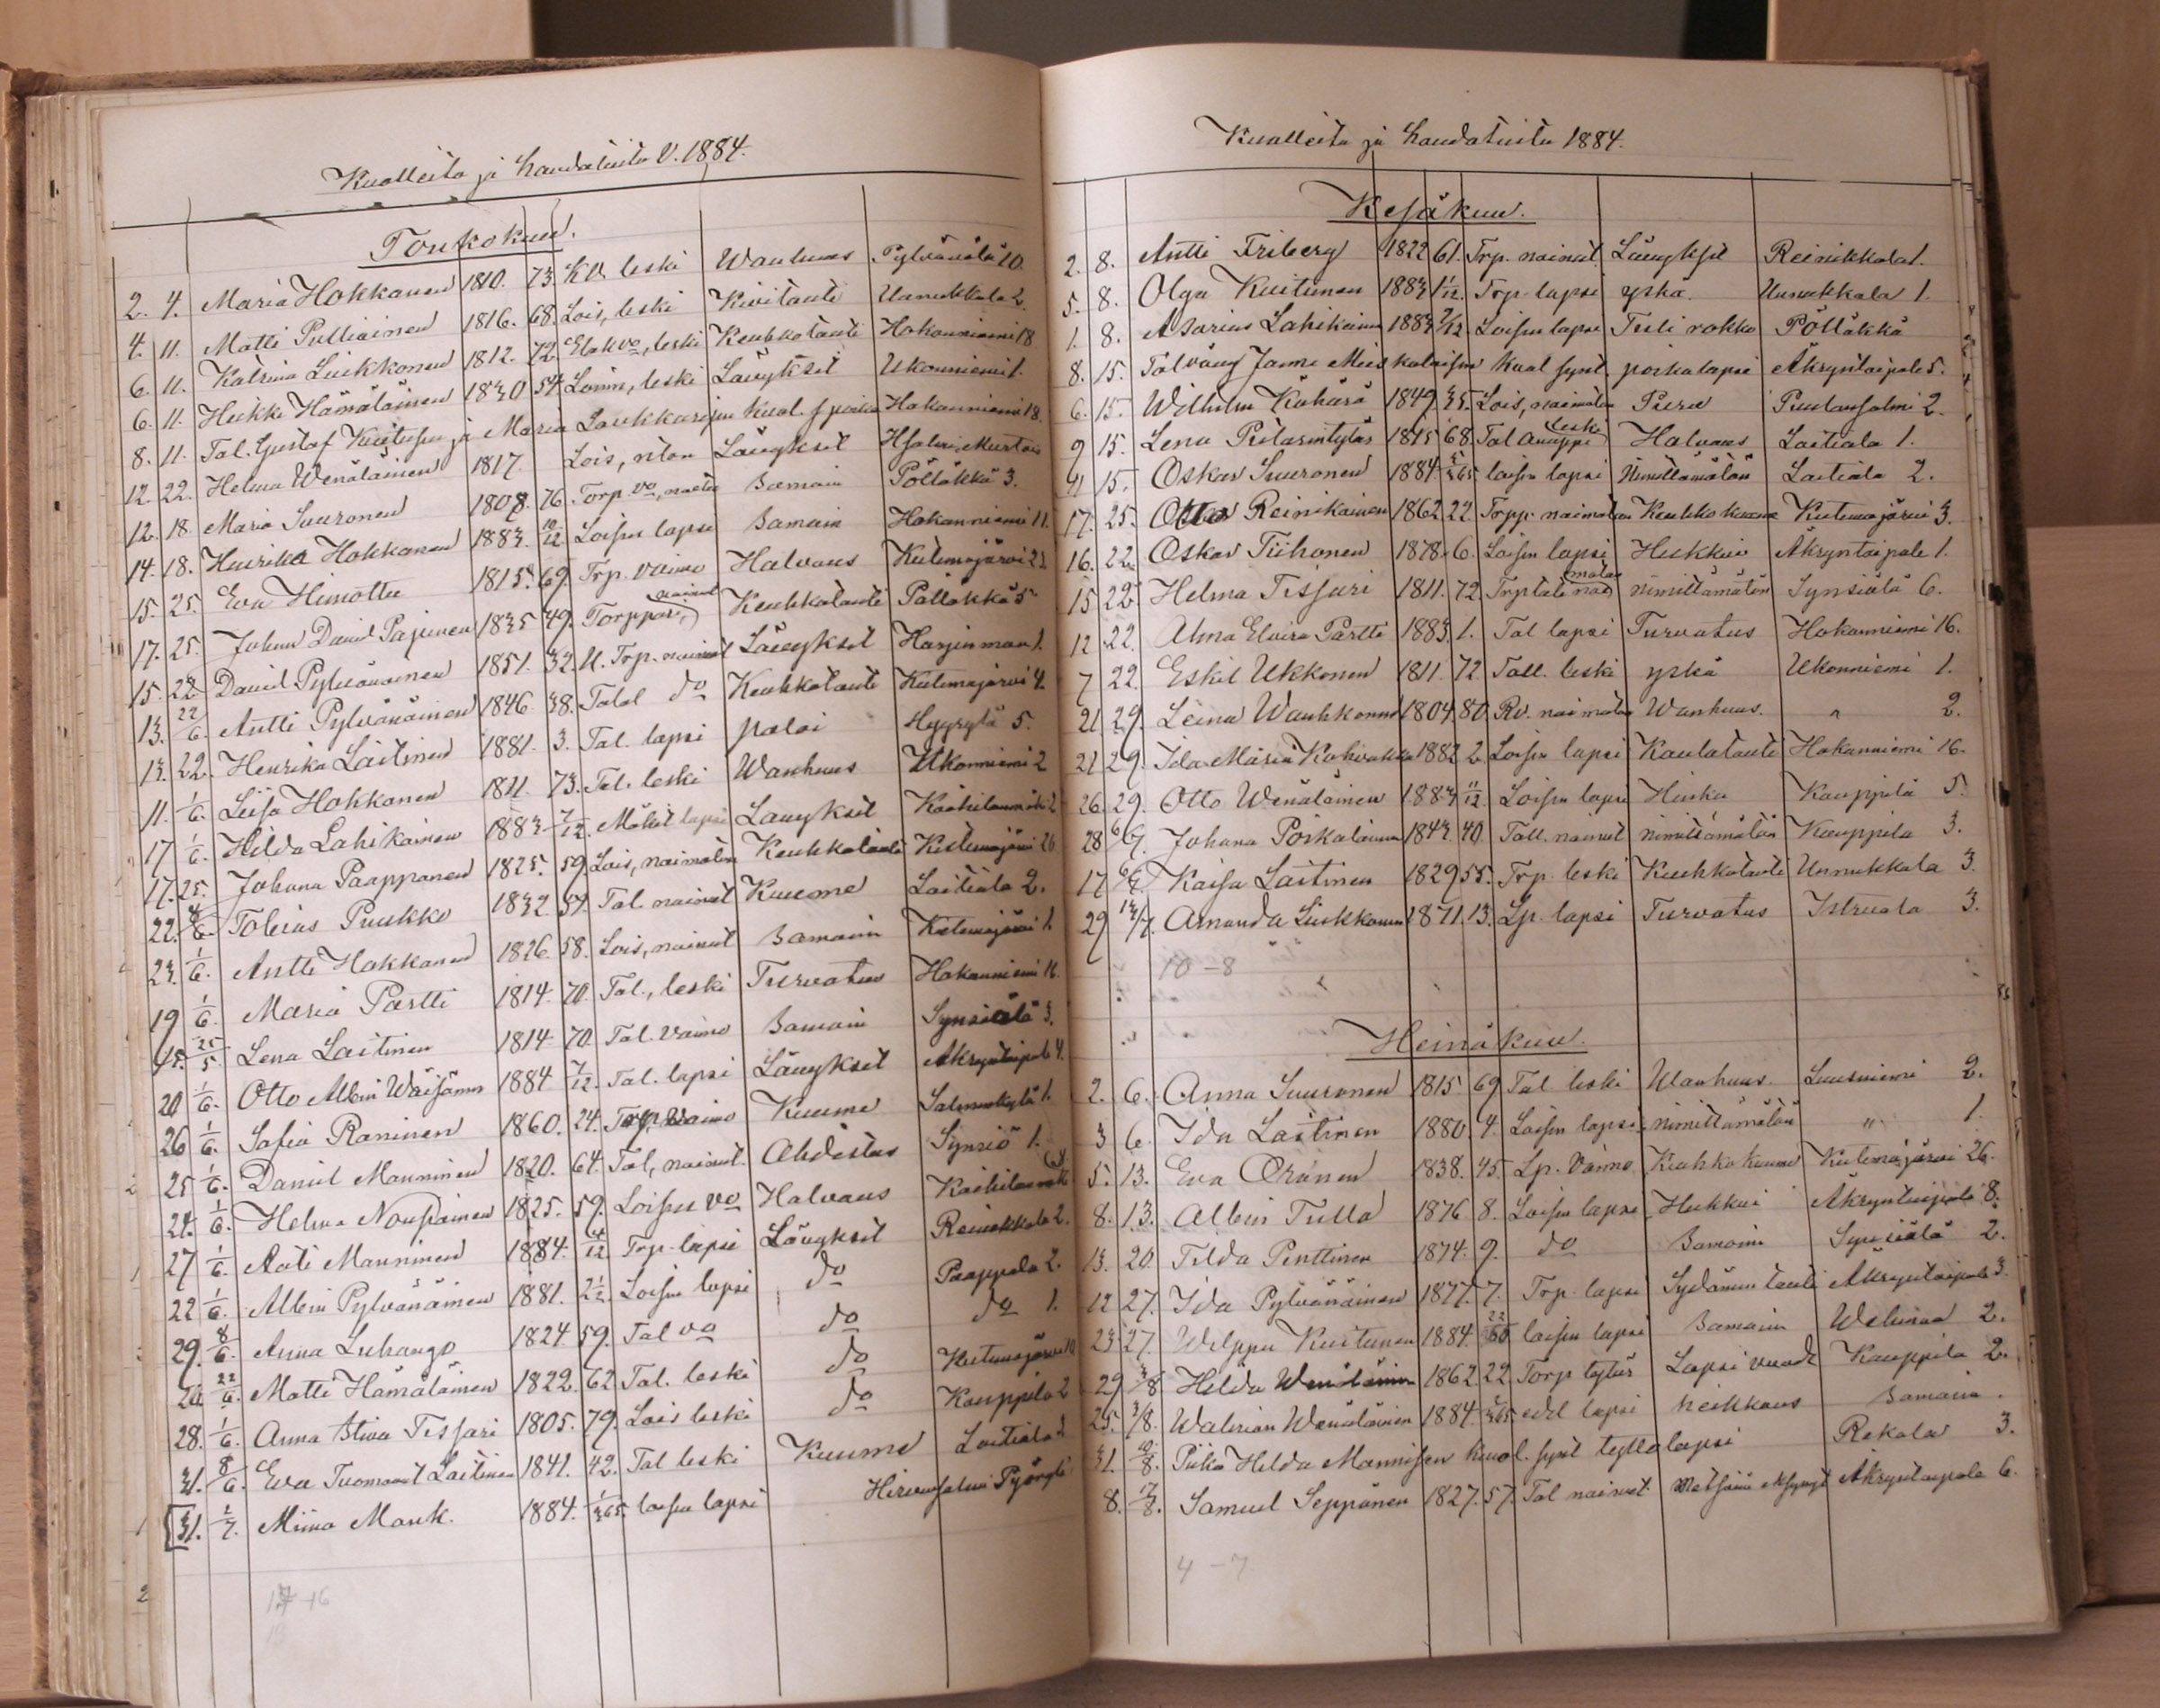 Kuolleita ja haudatuita V. 1884.
Toukokuu.
2. 4. Maria Hokkanen 1810. 73. KV. leski Wanhuus Pylvänälä 10.
4. 11. Matti Pulliainen 1816. 68. Lois, leski Kivitauti Unnukkala 2.
6. 11. Katrina Liukkonen 1812. 72. leski Keuhkotauti Hokanniemi 18.
6. 11. Heikki Hämäläinen 1830 54. Loinn, leski Läuyksit Ukonniemi 1.
8. 11. Tal. Gustaf Kuitusen ja Maria Laukkarisen kuol. s poika Hokanniemi 18.
12. 22. Helena Wenäläinen 1817. Lois, Läuyksit
12. 18. Maria Suuronen 1808. 76. Torp. vo, Samain Pölläkkä 3.
14. 18. Henrika Hokkanen 1883. 10/12 Loisen lapse Samain Hokanniemi 11.
15. 25. Eva Himottu 1815. 69. Trp. vaimo Halvaus Kutemajärvi 21.
17. 25. Johan David Pajunen 1835 49. Torppari, nainut Keuhkotauti Pölläkkä 5
15. 22. David Pylvänäinen 1851. 32. U. Trp. nainut Läuyksit Harjunmaa 1.
13. 22/6. Antti Pylvänäinen 1846. 38. Talol do Keuhkotauti Kutemajärvi 4.
13. 22. Henrika Laitinen 1881. 3. Tal. lapsi paloi Hyyrylä 5.
11. 1/6. Liisa Hokkanen 1811. 73. Tal. leski Wanhuus Ukonniemi 2
17 1/6. Hilda Lahikainen 1883 7/12. Mökit lapsi Läuyksit 2
17. 25. Johana Paappanen 1825. 59. Lois, naimaton Keuhkotauti Kutemajärvi 26
22. 8/6. Tobias Puukko 1832 51. Tal. nainut Kuume Laitiala 2.
23. 1/6. Antti Hokkanen 1826. 58. Lois, nainut Samain Kutemajärvi 1.
19 1/6. Maria Partti 1814. 70. Tal., leski Turvotus Hokanniemi 16.
15. 25/5. Lena Laitinen 1814. 70. Tal. vaimo Samain Synsiälä 3.
20 1/6. Otto Albin Wäisänen 1884 7/12. Tal. lapsi Läuyksit Akryntaipale 4.
26 1/6. Sofia Raninen 1860. 24. Trp. vaimo Kuume Salmenkylä 1.
25 1/6. Daniel Manninen 1820. 64. Tal, nainut. Ahdistus Synsiö 1.
24. 1/6. Helena Nousiainen 1825. 59. Loisen vo Halvaus
27 1/6. Aati Manninen 1884. Trp. lapsi Läuyksit Reinikkala 2.
22 1/6. Albin Pylvänäinen 1881. 2 1/2. Loisen lapsi do Paappala 2.
29. 8/6. Anna Luhango 1824. 59. Tal vo do do 1.
20 22/6. Matti Hämäläinen 1822. 62. Tal. leski do Kutemajärvi
28. 1/6. Anna Stina Tissari 1805. 79. Lois leski do Kauppila 2
31. 8/6. Eva Tuomaant Laitinen 1841. 42. Tal leski Kuume Laitiala
[31. 1/7. Miina Mank. 1884. 1/365. loisen lapsi Hirvensalmi
17 - 16
Kuolleita ja haudatuita 1884.
Kesäkuu.
2. 8. Antti Friberg 1822 61. Trp. nainut. Läuyksit Reinikkala 1.
5. 8. Olga Kuitunen 1883 1 1/12. Trp. lapsi yskä. Unnukkala 1.
1. 8. Asarias Lahikainen 1883 7/12 Loisen lapse Tuli rokko Pölläkkä
8. 15. Talväug Janne Mieskolaisen kuol synt. poikalapsi Akryntaipale 5.
6. 15. Wilhelm Kähärä 1849 35. Lois, naimaton Puru Puulansalmi 2.
9 15. Lena Pitärintytär 1815 68. Tal leski Halvaus Laitiala 1.
4 15. Oskar Suuronen 1884 loisen lapsi Nimittämätön Laitiala 2.
17. 25. Otto Reinikainen 1862 22. Torpp. naimaton Keuhko kuume Kutemajärvi 3.
16. 22. Oskar Tiihonen 1878. 6. Loisen lapsi Hukkui Akryntaipale 1.
15 22. Helena Tissari 1811. 72. nimittämätön Synsiälä 6.
12 22. Alma Elvira Partti 1883. 1. Tal lapsi Turvotus Hokanniemi 16.
7 22. Eskil Ukkonen 1811. 72. Tall. leski yskä Ukonniemi 1.
21 29. Leina Wauhkonen 1804. 80. Rv. naimaton Wanhuus. " 2.
21 29. Ida Maria Kohvakka 1882 2. Loisen lapsi Kaulatauti Hokanniemi 16.
26. 29. Otto Wenäläinen 1883 11/12. Loisen lapsi Hinku Kauppila 5.
28 6/7. Johana Poikalainen 1843. 40. Tall. nainut nimittämätön Kauppila 3.
17 6/7. Kaisa Laitinen 1829 55. Trp. leski Keuhkotauti Unnukkala 3.
29 13/7. Amanda Liukkonen 1871. 13. Lp. lapsi Turvotus Istruala 3.
10 - 8
Heinäkuu.
2. 6. Anna Suuronen 1815. 69 Tal leski Wanhuus. Luusniemi 2.
3 6. Ida Laitinen 1880. 4. Loisen lapsi nimittämätön " 1.
5. 13. Eva Oränen 1838. 45. Lp. Vaimo Keuhko kuume Kutemajärvi 26.
8. 13. Albin Tulla 1876 8. Loisen lapse Hukkui Akryntaipale 8.
13. 20. Tilda Penttinen 1874. 9. do Samain Synsiälä 2.
12 27. Ida Pylvänäinen 1877. 7. Trp. lapsi Sydämen tauti Akryntaipale 3.
23 27. Welppu Kuitunen 1884. loisen lapsi Samain Wehmaa 2.
29 3/8 Hilda Wenäläinen 1862 22 Torp tytär Lapsi vuode Kauppila 2.
25. 3/8. Walirian Wenäläinen 1884. edel lapsi heikkous Samain.
31. 10/8. Piika Helda Mannisen kuol. synt tyttölapsi Rekola 3.
8. 17/8. Samuel Seppänen 1827. 57. Tal nainut. Metsään eksynyt Akryntaipale 6.
4 - 7